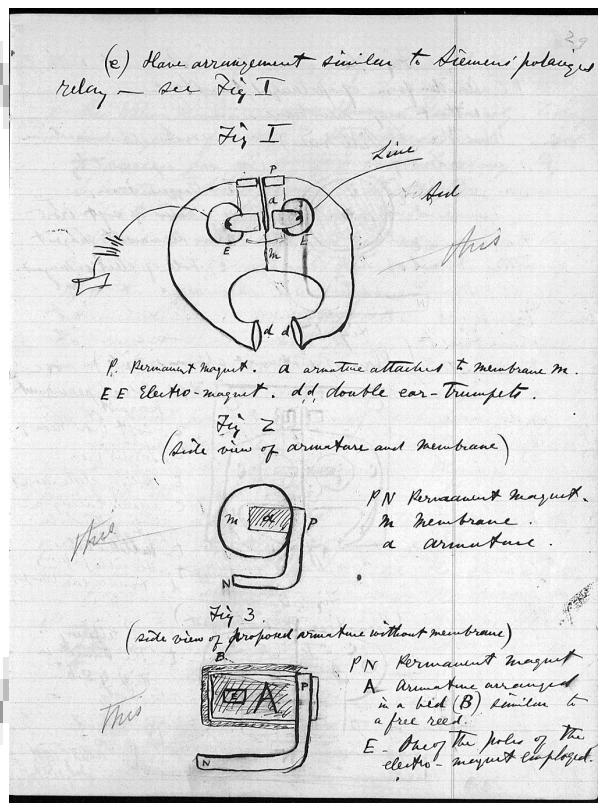 39
(e) Have arrangement similar to Siemens' polarized
relay — see Fig I
Fig I
Line
P
a
E
E
m
d d
this
P. Permanent Magnet. a armature attached to membrane m.
E E Electro-magnet. d,d, double ear-trumpets.
Fig 2
(side view of armature and membrane)
m
a
P
N
PN Permanent Magnet.
m membrane.
a armature.
this
Fig 3.
(side view of proposed armature without membrane)
B
E
A
P
N
PN Permanent Magnet
A Armature arranged
in a bed (B) similar to
a free reed.
E - One of the poles of the
electro-magnet employed.
This